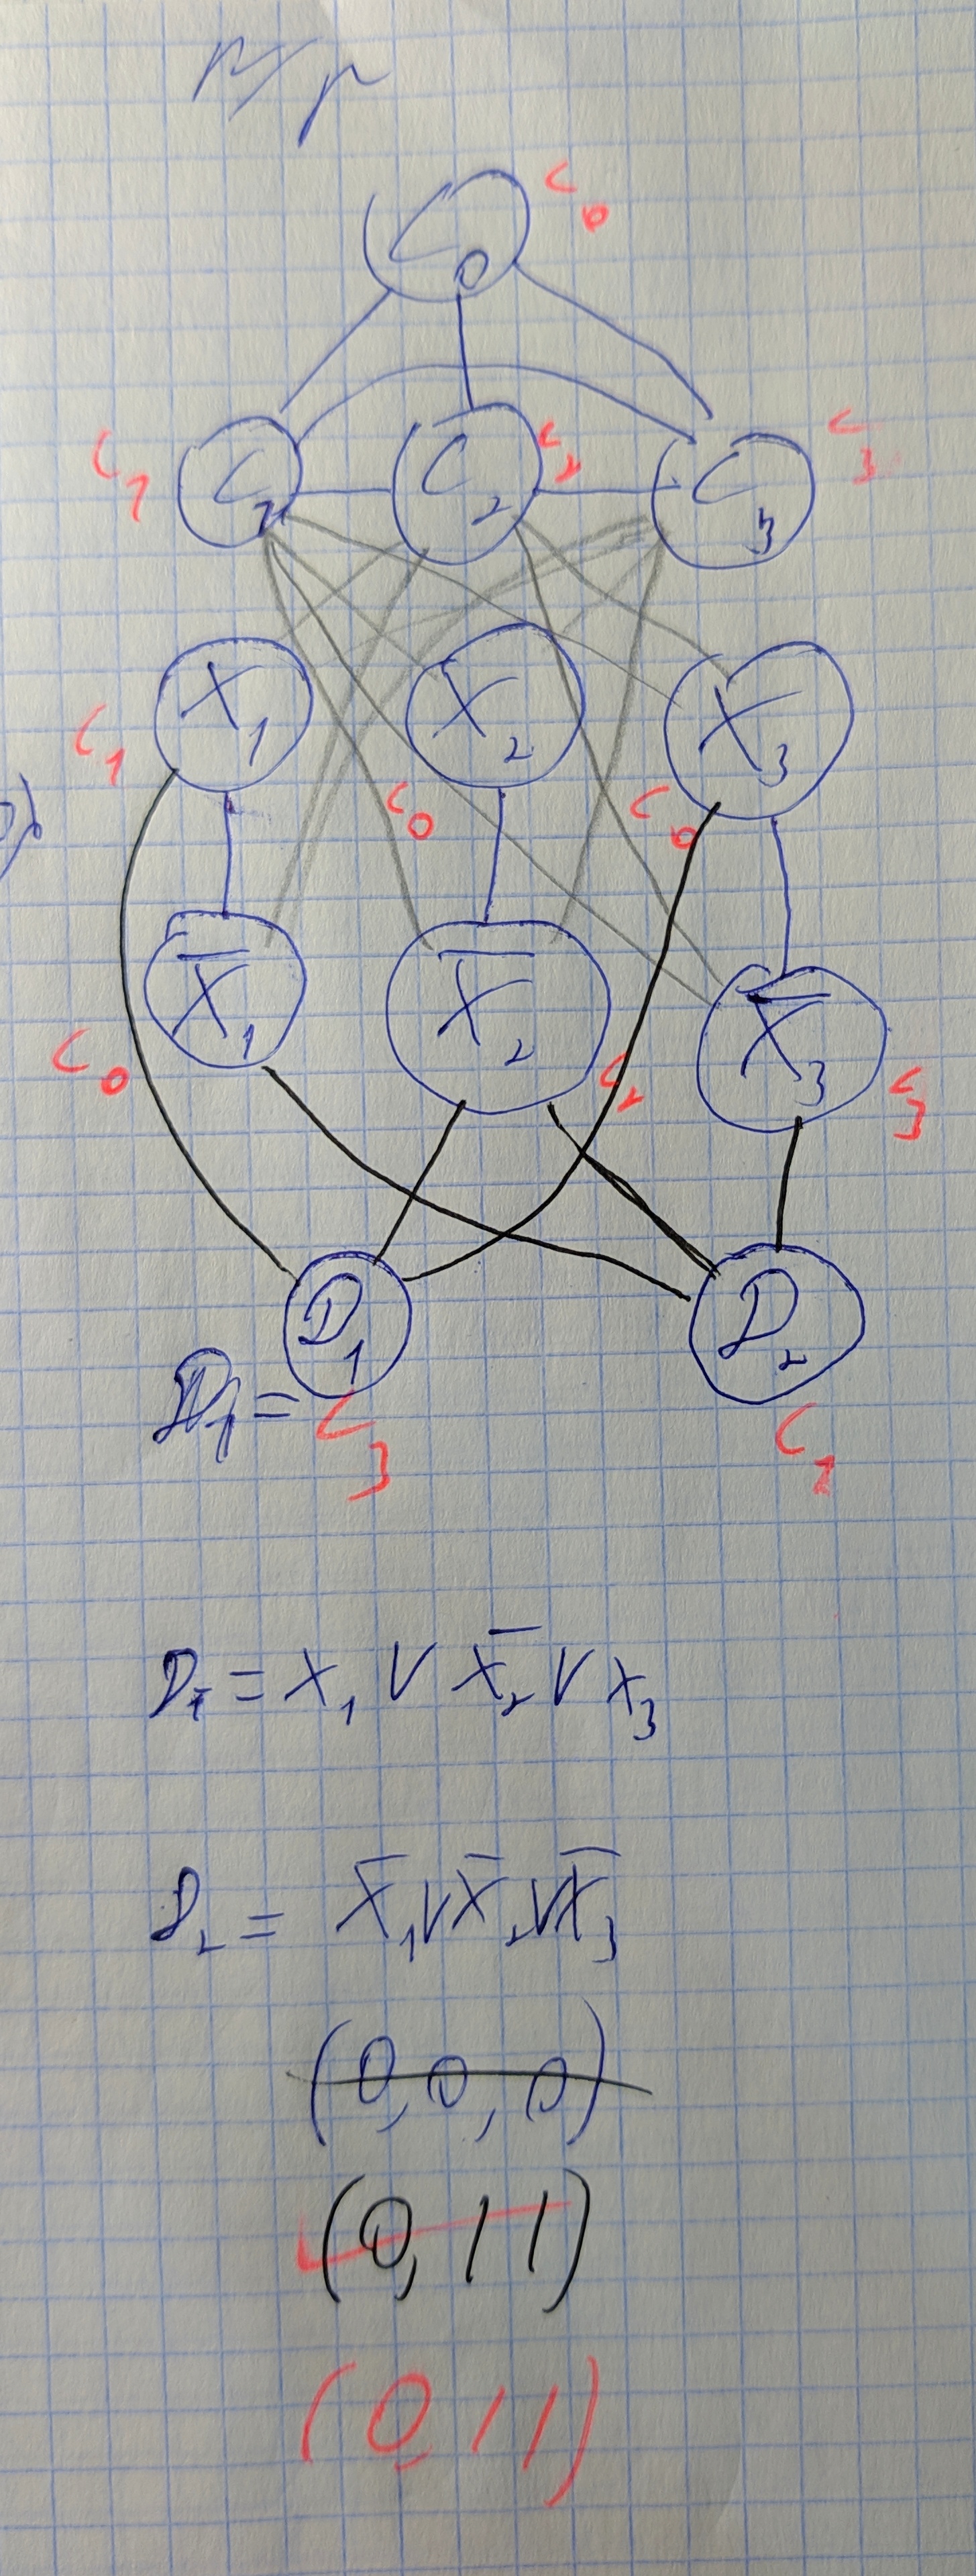 C₀ C₀
C₁ C₁ C₂ C₂ C₃ C₃
X₁ X₂ X₃
C₁ C₀ C₀
X̅₁ X̅₂ X̅₃
C₀ C₂ C₃
D₁ D₂
D₁ = C₃ C₁
D₁ = X₁ V X̅₂ V X₃
D₂ = X̅₁ V X̅₂ V X̅₃
(0, 0, 0)
(0, 1 1)
(0, 1 1)